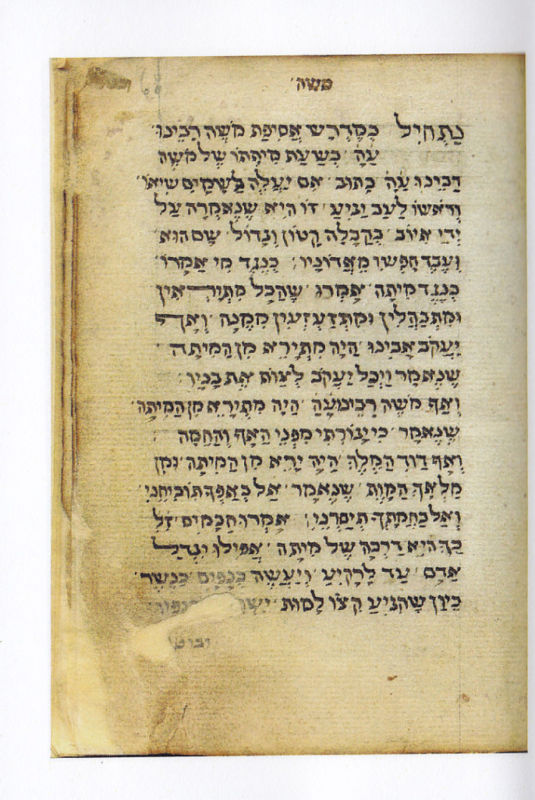 משה
נתחיל כמדרש אסיפת משה רבינו
ע״ה בשעת מיתתו של משה
רבינו ע״ה כתוב אם יעלה לשמים שיאו
וראשו לעב יגיע זו היא שנאמרה על
ידי איוב בקבלה קטון וגדול שם הוא
ועבד חפשי מאדוניו כנגד מי אמרו
כנגד מיתה אמרו שהכל מתיראין
ומתבהלין ומתזעזעין ממנה ואף
יעקב אבינו היה מתירא מן המיתה
שנאמר ויכל יעקב לצות את בניו
ואף משה רבינו ע״ה היה מתירא מן המיתה
שנאמר כי יגורתי מפני האף והחמה
ואף דוד המלך היה ירא מן המיתה ומן
מלאך המות שנאמר אל באפך תוכיחני
ואל בחמתך תיסרני אמרו חכמים ז״ל
כך היא דרכה של מיתה אפילו יגדל
אדם עד לרקיע ויעשה כנפים כנשר
כיון שהגיע קצו למות